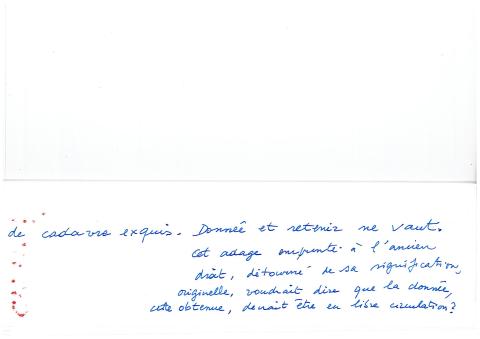 de cadavre exquis. Donnée et retenir ne vaut.
Cet adage emprunté à l'ancien
droit, détourné de sa signification
originelle, voudrait dire que la donnée,
cette obtenue, devrait être en libre circulation?